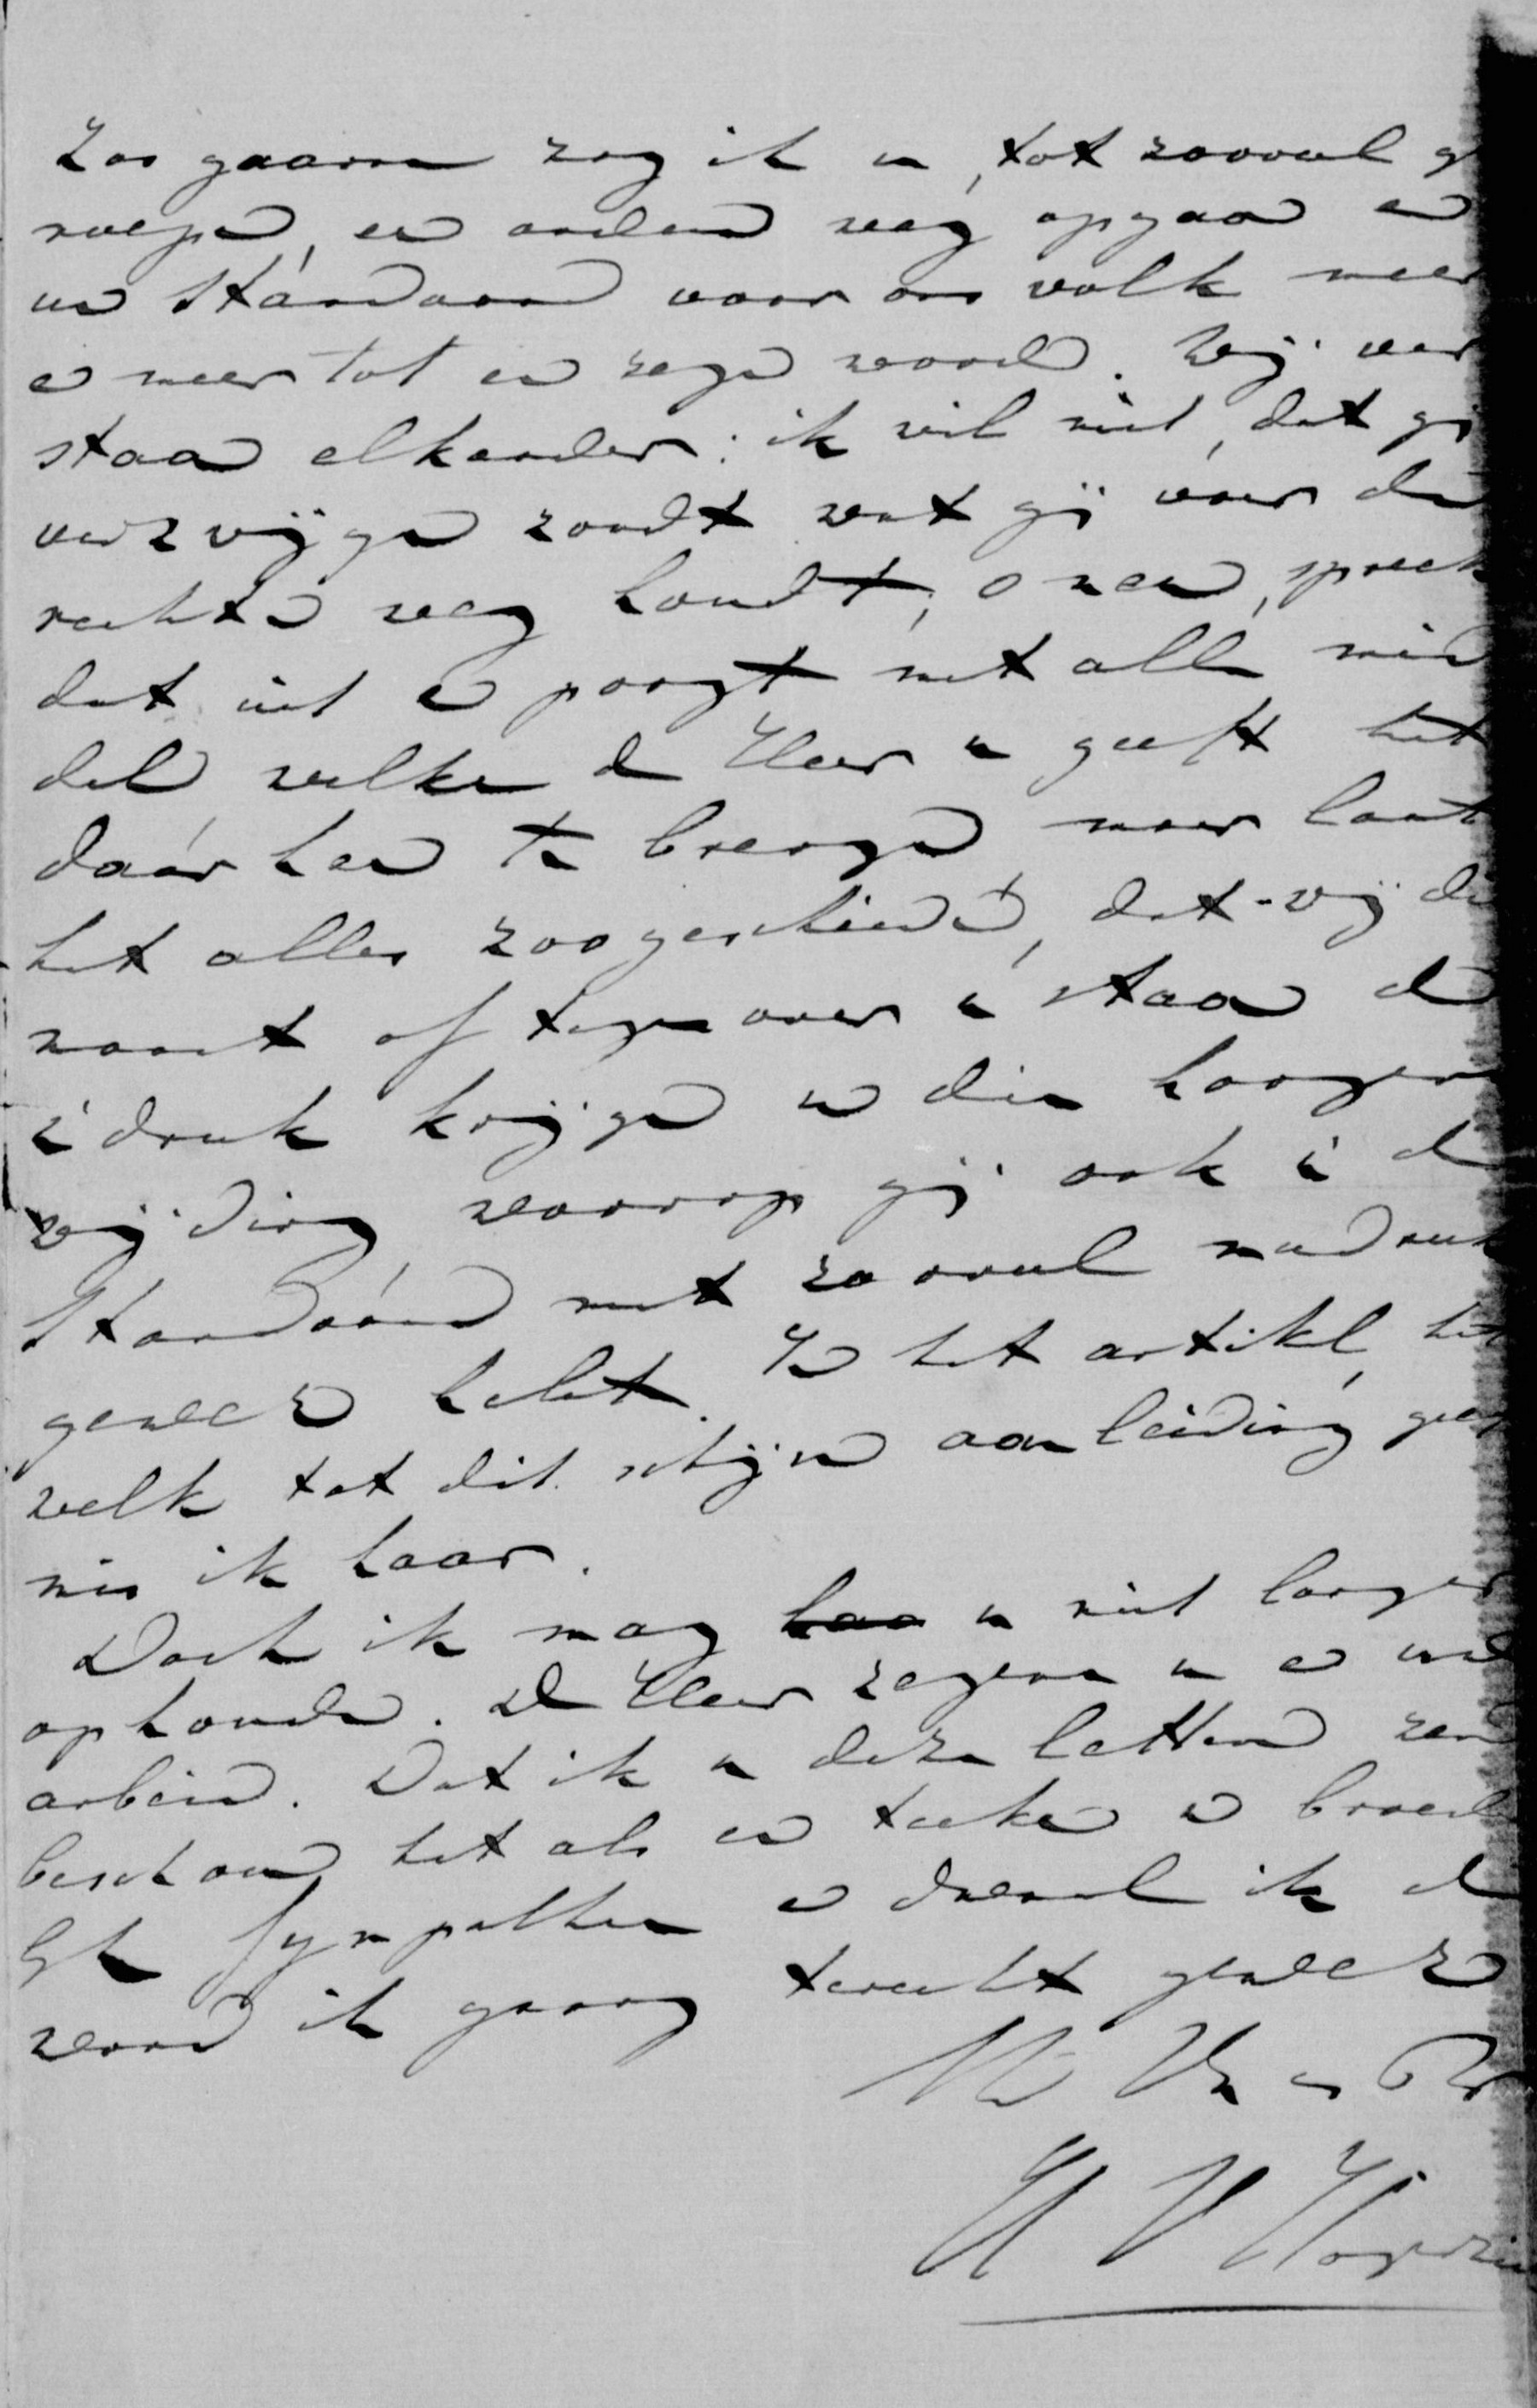 Zoo gaarne zag ik u, tot zooveel ge
roepen, een anderen weg opgaan en
uw Standaard voor ons volk meer
en meer tot een zegen worden. Wij ver
staan elkander: ik wil niet, dat gij
verzwijgen zoudt wat gij voor den
rechten weg houdt, o neen, spreek
dat uit en poogt met alle mid
delen welke de Heer u geeft het
daarheen te brengen maar laat
het alles zoo geschieden, dat wij die
naast of tegenover u staan den
indruk krijgen van die hoogere
wijding waarop gij ook in de
Standaard met zooveel nadruk
gewezen hebt. In het artikel, het
welk tot dit schrijven aanleiding geeft
mis ik haar.
Doch ik mag u niet langer
ophouden. De Heer zegene u en uw
arbeid. Dat ik u deze letteren zend
beschouw het als een teeken van broeder
lijke sympathie en dwaal ik dan
word ik gaarne terecht gewezen
Uw en Br
H V